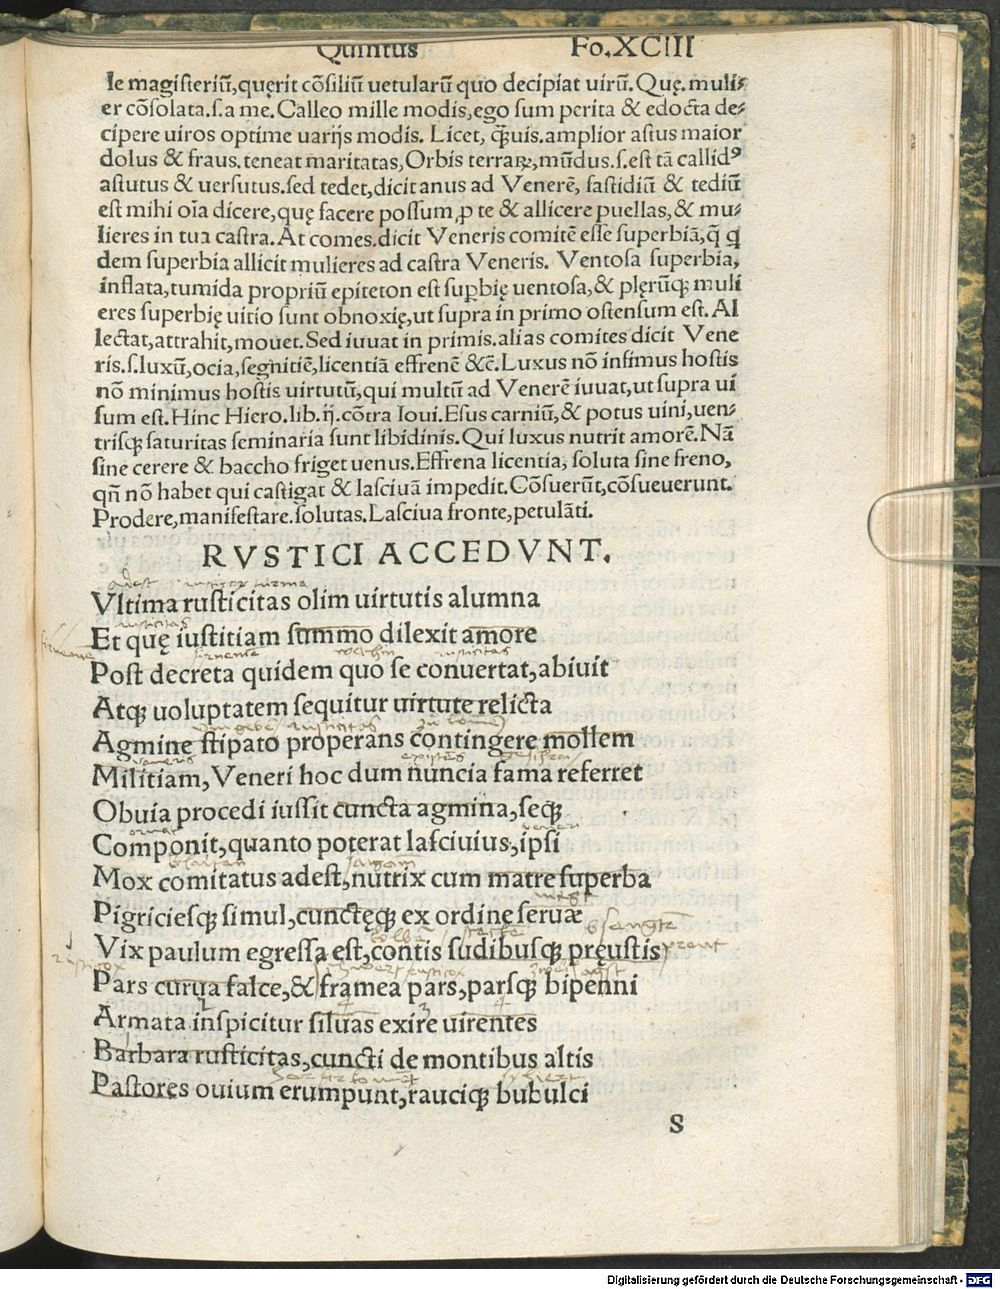 Quintus Fo.XCIII
le magisteriū,quęrit cōsiliū uetularū quo decipiat uirū.Quę.muli-
er cōsolata.s.a me.Calleo mille modis,ego sum perita & edocta de-
cipere uiros optime uarijs modis. Licet, q̃uis.amplior astus maior
dolus & fraus.teneat maritatas,Orbis terraꝝ,mūdus.s.est tā callidꝰ
astutus & uersutus.sed tedet,dicit anus ad Venerē, fastidiū & tediū
est mihi oīa dicere,quę facere possum,ꝓ te & allicere puellas,& mu-
lieres in tua castra.At comes.dicit Veneris comitē esse superbiā,q̄ q
dem superbia allicit mulieres ad castra Veneris. Ventosa superbia,
inflata,tumida propriū epiteton est suꝑbię uentosa,& plęrūq; muli
eres superbię uitio sunt obnoxię,ut supra in primo ostensum est.Al
lectat,attrahit,mouet.Sed iuuat in primis.alias comites dicit Vene
ris.s.luxū,ocia,segnitiē,licentiā effrenē &c̄.Luxus nō infimus hostis
nō minimus hostis uirtutū,qui multū ad Venerē iuuat,ut supra ui
sum est.Hinc Hiero.lib.ij.cōtra Ioui.Esus carniū,& potus uini,uen-
trisq; saturitas seminaria sunt libidinis.Qui luxus nutrit amorē.Nā
sine cerere & baccho friget uenus.Effrena licentia, soluta sine freno,
qñ nō habet qui castigat & lasciuā impedit.Cōsuerūt,cōsueuerunt.
Prodere,manifestare.solutas.Lasciua fronte,petulāti.
RVSTICI ACCEDVNT.
adest
Vltima rusticitas olim uirtutis alumna
rusticitas
Et quę iustitiam summo dilexit amore
rusticitas
Post decreta quidem quo se conuertat,abiuit
Atq; uoluptatem sequitur uirtute relicta
rusticitas
Agmine stipato properans contingere mollem
veneris
Militiam, Veneri hoc dum nuncia fama referret
Obuia procedi iussit cuncta agmina,seq;
ornat veneri
Componit,quanto poterat lasciuius,ipsi
Mox comitatus adest,nutrix cum matre superba
Pigriciesq; simul,cunctęq; ex ordine seruæ
Vix paulum egressa est,contis sudibusq; pręustis
Pars curua falce,& framea pars,parsq; bipenni
Armata inspicitur siluas exire uirentes
Barbara rusticitas,cuncti de montibus altis
Pastores ouium erumpunt,rauciq; bubulci
S
Digitalisierung gefördert durch die Deutsche Forschungsgemeinschaft - DFG